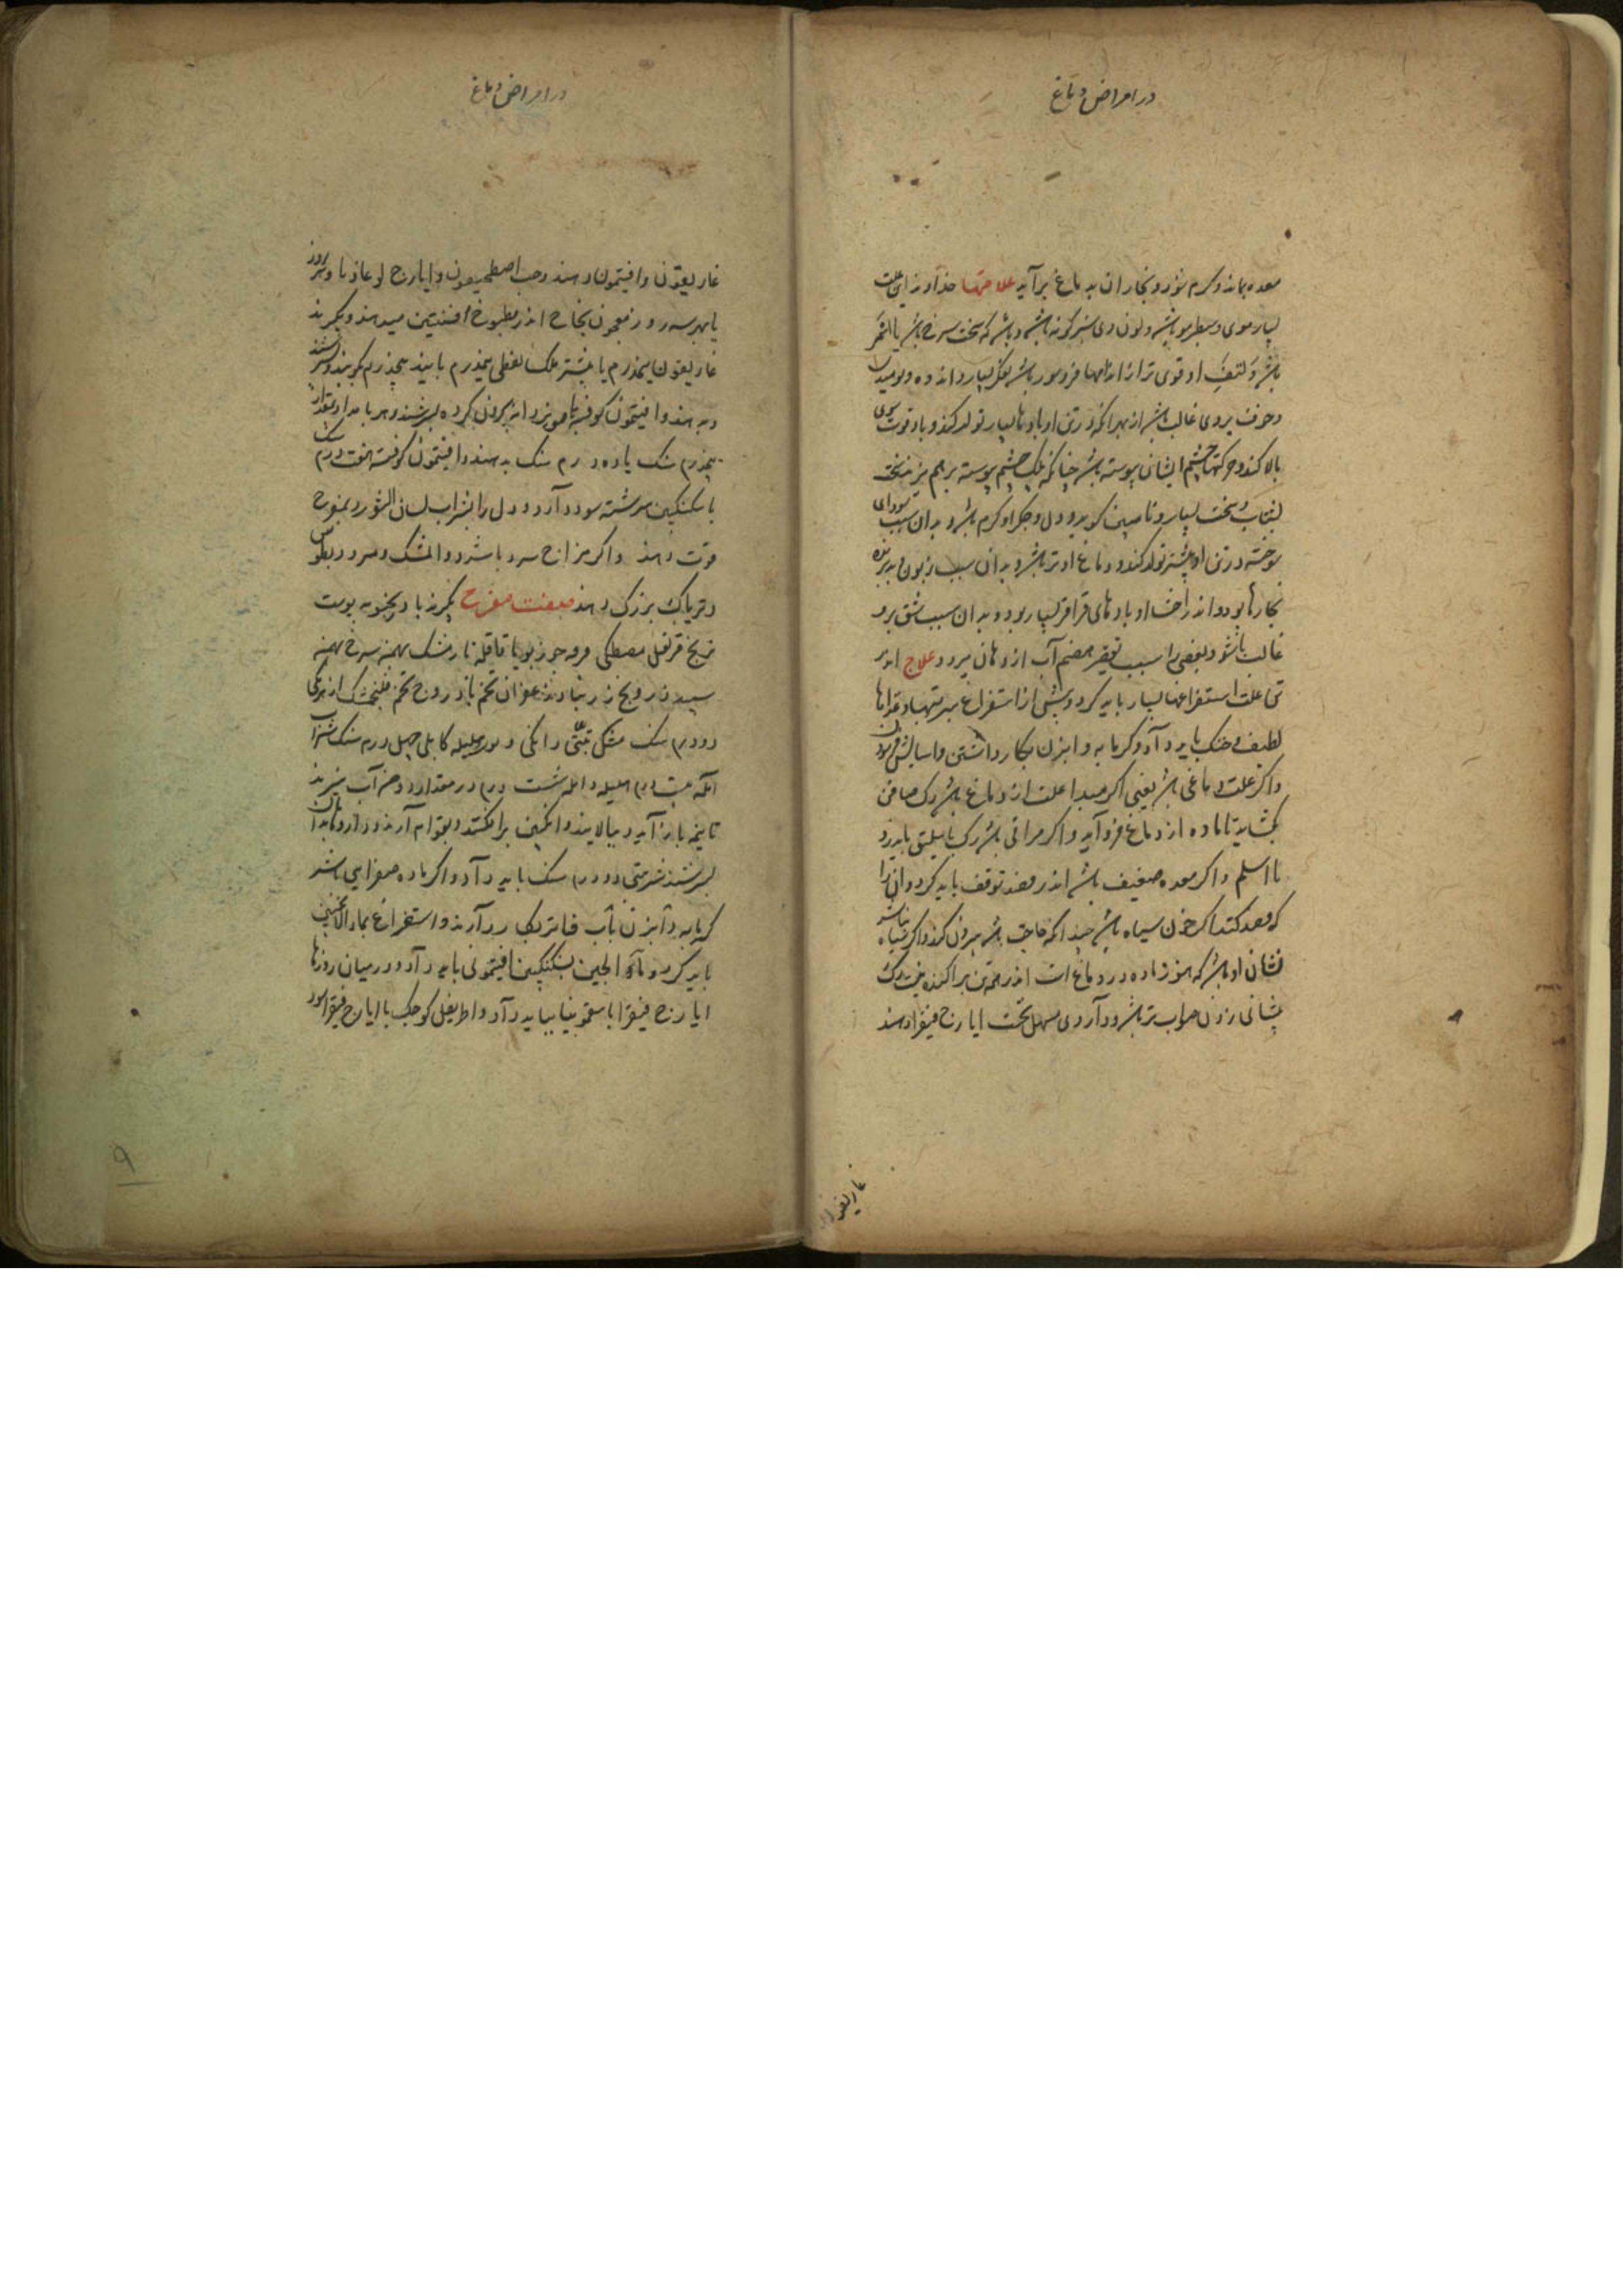 در امراض دماغ
معده بماند و کرم شود و بخار ان به دماغ برآید علامتها خداوند این علت
بسیار موی و سطبر مو باشد و لون وی سبز کونه باشد و باشد که سخت سرخ باشد یا اسمر
باشد و کتف او قوی تر از اندامها فرو سو باشد فکر بسیار و اندوه و نومیدی
و خوف بروی غالب باشد از بهر انکه در تن او بادها بسیار تولد کند و باد قوت سوی
بالا کند و حرکتهاء چشم ایشان پیوسته باشد چنانکه پلک چشم پیوسته بر هم میزند سخت
بشتاب و سخت بسیار و نامبین کوید و دل و جکر او کرم باشد و بدان سبب سودای
سوخته در تن او بیشتر تولد کند و دماغ او تر باشد و بدان سبب زبون و پذیرنده
بخارها بود و اندر احشا او بادهای قراقر بسیار بود و بدان سبب شبق برو
غالب باشد و بعضی را سبب تقصیر هضم آب از دهان میرود علاج اندر
این علت استفراغها بسیار باید کرد و پیش از استفراغ شربتها و غذاها
لطیف و خنک باید داد و کرمابه و ابزن بکار داشتن و اسایش فرمودن
و اکر علت دماغی باشد یعنی اکر مبدا علت از دماغ باشد رک صافن
بکشاید تا ماده از دماغ فرو آید و اکر مراقی باشد رک باسلیق باید زد
یا اسلم و اکر معده ضعیف باشد اندر فصد توقف باید کرد و ان را
که فصد کنند اکر خون سیاه باشد چندانکه حاجت باشد بیرون کند و اکر سیاه نباشد
نشان او باشد که هنوز ماده در دماغ است اندر همه تن پراکنده نیست رک
پیشانی زدن صواب تر باشد و داروی مسهل نخست ایارج فیقرا دهند
غاریقون
در امراض دماغ
غاریقون و افتیمون دهند و حب اصطمخیقون و ایارج لوغاذیا و هر روز
یا بهر سه روز معجون نجاح اندر مطبوخ افسنتین میدهند و بکیرند
غاریقون پنجدرم یا بیشتر ملک نفطی پنجدرم یا بیند پنجدرم کوبند و سرشند
و بدهند و افتیمون کوفته با مویز دانه بیرون کرده بسرشند و هر بامداد مقدار
پنجدرم سنک یا ده درم سنک بدهند و افتیمون کوفته هفت درم سنک
با سکنکبین سرشته سود دارد و دل را بشراب لسان الثور و بمفرح
قوت دهند و اکر مزاج سرد باشد دواءالمشک و مثرودیطوس
و تریاک بزرک دهند صفت مفرح بکیرند بادرنجبویه پوست
ترنج قرنفل مصطکی قرفه جوزبویا قاقله نارمشک بهمن سرخ بهمن
سپید درونج زرنباد زعفران تخم بادروج تخم فلنجمشک از هر یکی
دو درم سنک مشک تبتی دانکی و هلیله کابلی چهل درم سنک شراب
آمله بیست درم هلیله و آمله شست درم در مقدار دو من آب بپزند
تا بنیمه باز آید و بپالایند و انکبین برافکنند و بقوام آرند و داروها بدان
بسرشند شربتی دو درم سنک باید داد و اکر ماده صفرایی باشد
کرمابه و آبزن بآب فاتر بکار دارند و استفراغ بماءالاجبن
باید کرد و ماءالجبن بسکنکبین افتیمونی باید داد و در میان روزها
ایارج فیقرا با سقمونیا بباید داد و اطریفل کوچک با ایارج فیقرا سود
۹